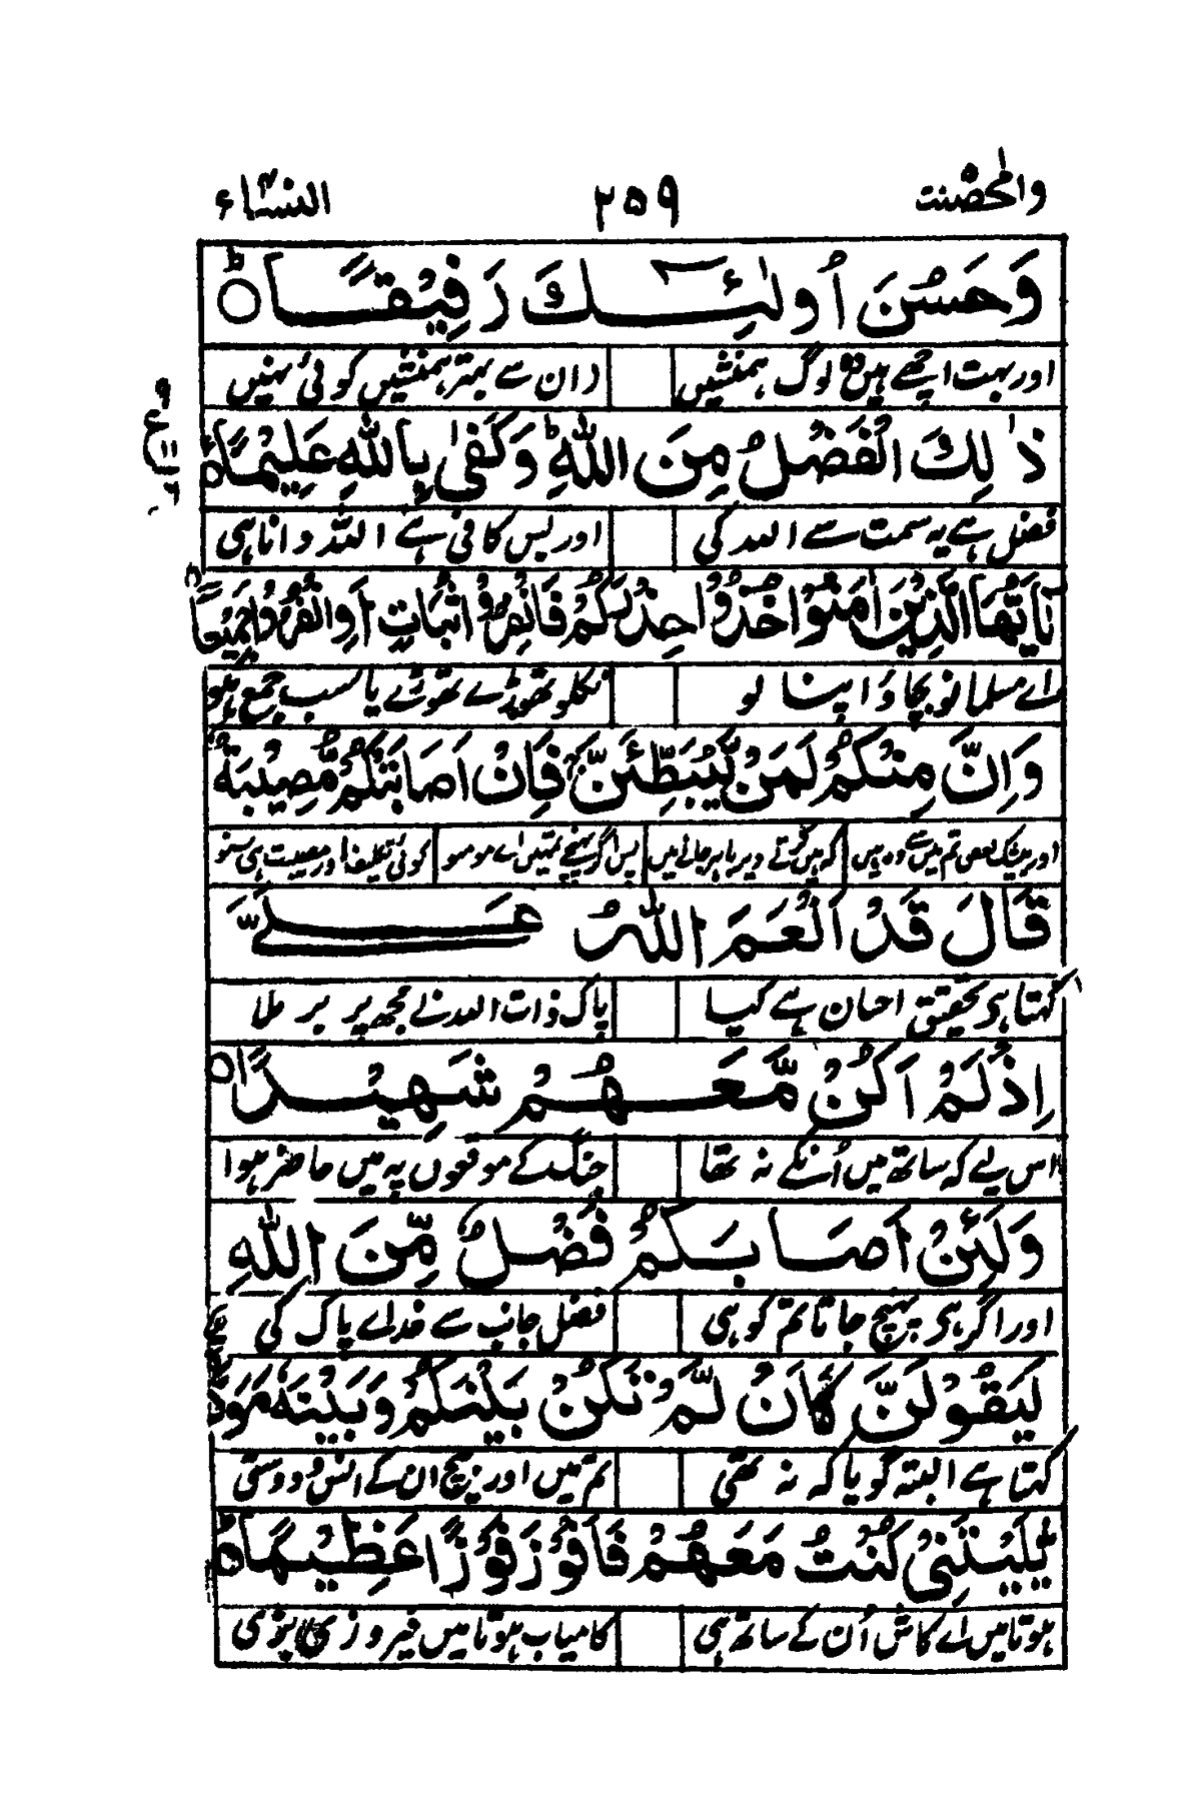 والمحصنت ۲۵۹ النسآء
وَحَسُنَ اُولٰٓئِكَ رَفِيْقًا ؕ
اور بہت اچھے ہیں وہ لوگ ہمنشیں ان سے بہتر ہمنشیں کوئی نہیں
ذٰلِكَ الْفَضْلُ مِنَ اللّٰهِ ؕ وَكَفٰى بِاللّٰهِ عَلِيْمًا
فضل ہے یہ سمت سے اللہ کی اور بس کافی ہے اللہ دانا ہی
يٰٓاَيُّهَا الَّذِيْنَ اٰمَنُوْا خُذُوْا حِذْرَكُمْ فَانْفِرُوْا ثُبَاتٍ اَوِ انْفِرُوْا جَمِيْعًا
اے مسلمانو بچاؤ اپنا لو نکلو تھوڑے تھوڑے یا سب جمع ہو
وَاِنَّ مِنْكُمْ لَمَنْ لَّيُبَطِّئَنَّ ۚ فَاِنْ اَصَابَتْكُمْ مُّصِيْبَةٌ
اور بیشک بعض تم میں سے وہ ہیں کہ ہیں کرتے دیر باہر جانے میں پس اگر پہنچے تمہیں اے مومنو کوئی تکلیف اور مصیبت ہی سنو
قَالَ قَدْ اَنْعَمَ اللّٰهُ عَلَيَّ
کہتا ہی تحقیق احسان ہے کیا پاک ذات اللہ نے مجھ پر بر ملا
اِذْ لَمْ اَكُنْ مَّعَهُمْ شَهِيْدًا
اس لیے کہ ساتھ میں اُنکے نہ تھا جنگ کے موقعوں پہ میں حاضر ہوا
وَلَئِنْ اَصَابَكُمْ فَضْلٌ مِّنَ اللّٰهِ
اور اگر ہی پہنچ جاتا تم کو ہی فضل جانب سے خدا‎ے پاک کی
لَيَقُوْلَنَّ كَاَنْ لَّمْ تَكُنْ بَيْنَكُمْ وَبَيْنَهٗ مَوَدَّةٌ
کہتا ہے البتہ گویا کہ نہ تھی تم میں اور بیچ ان کے انس و دوستی
يّٰلَيْتَنِيْ كُنْتُ مَعَهُمْ فَاَفُوْزَ فَوْزًا عَظِيْمًا
ہوتا میں اے کاش اُن کے ساتھ ہی کامیاب ہوتا میں فیروزی بڑی